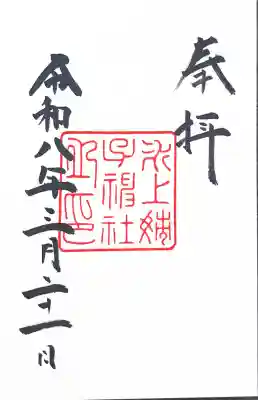 奉拝
氷上姉
子神社
令和八年三月二十一日